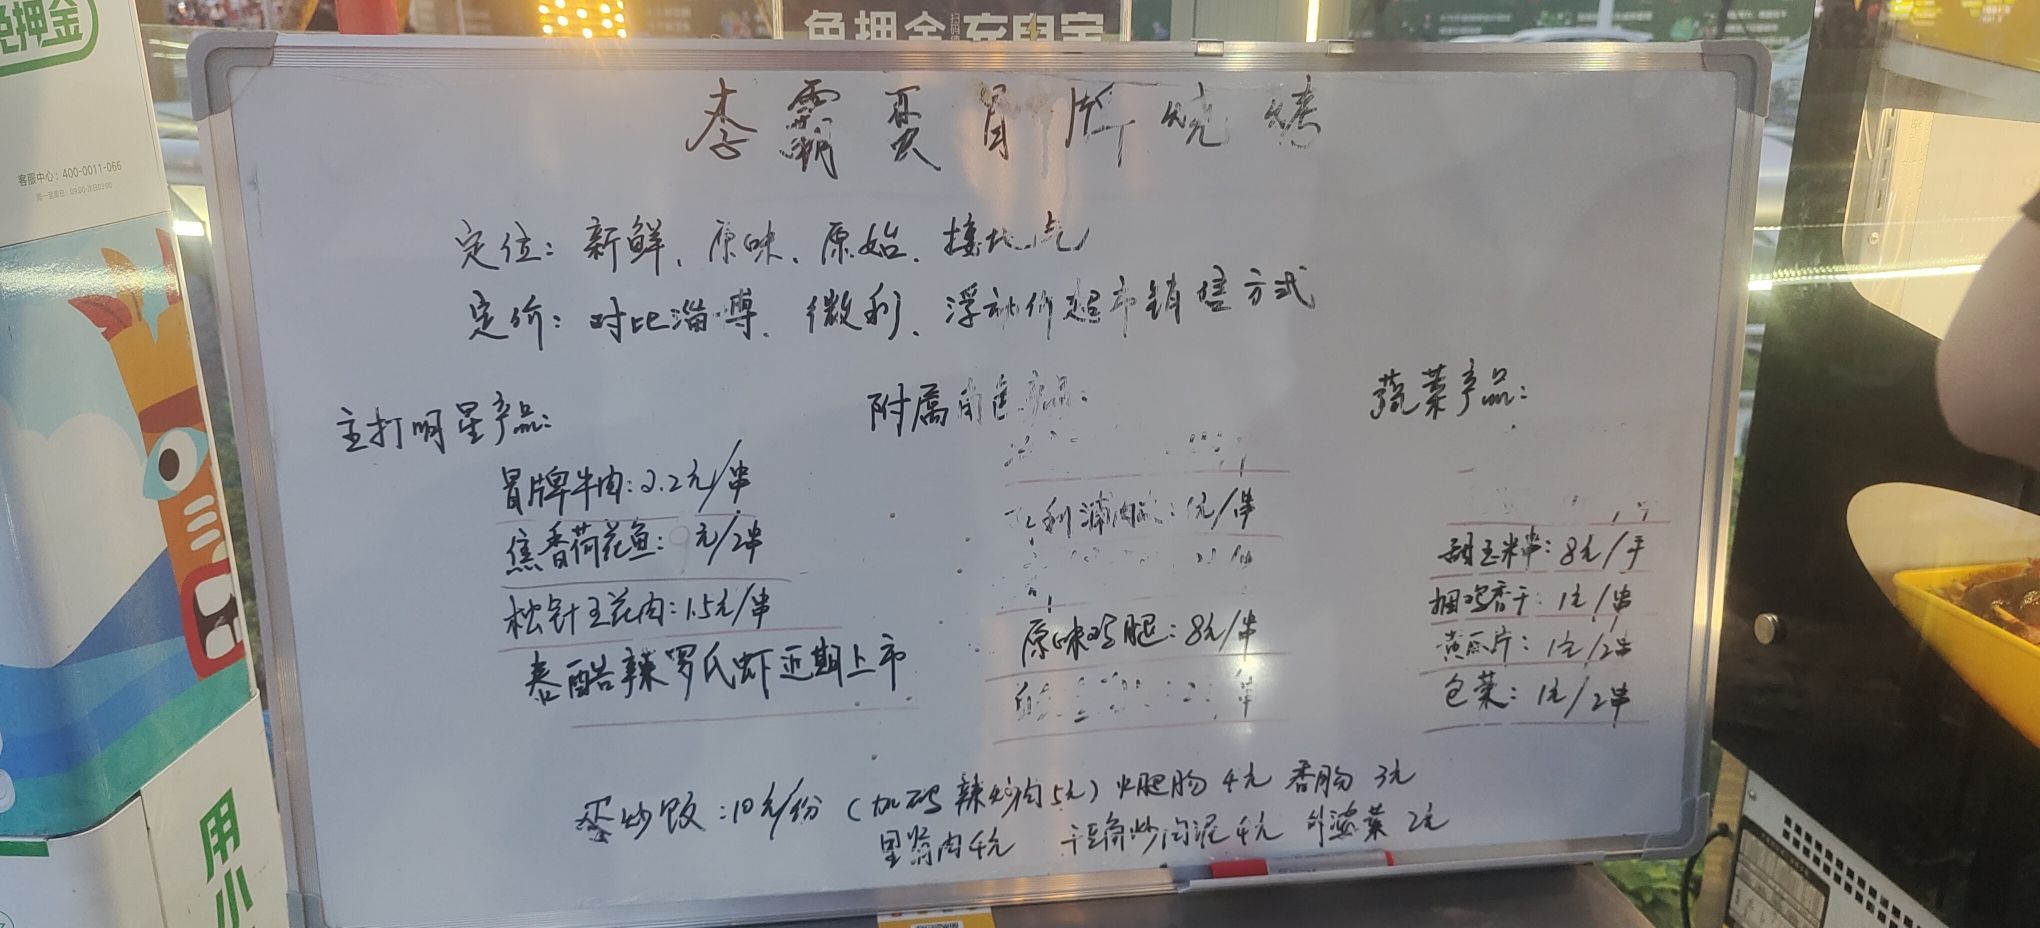 免押金
客服中心：400-0011-066
用小
免押金 扫码 充电宝
李霸天冒牌烧烤
定位：新鲜、原味、原始、接地气
定价：对比淄博、微利、浮动价超市销售方式
主打明星产品：
冒牌牛肉：2.2元/串
焦香荷花鱼：9元/2串
松针五花肉：1.5元/串
泰酷辣罗氏虾近期上市
附属肉 产品：
利 肉 ：1元/串
原味鸡腿：8元/串
串
蔬菜产品：
甜玉米串：8元/
捆鸡香干：1元/串
黄瓜片：1元/2串
包菜：1元/2串
蛋炒饭：10元/份（加码 辣炒肉5元）火腿肠 4元 香肠 3元
里脊肉4元 干豆角炒肉泥4元 外婆菜 2元